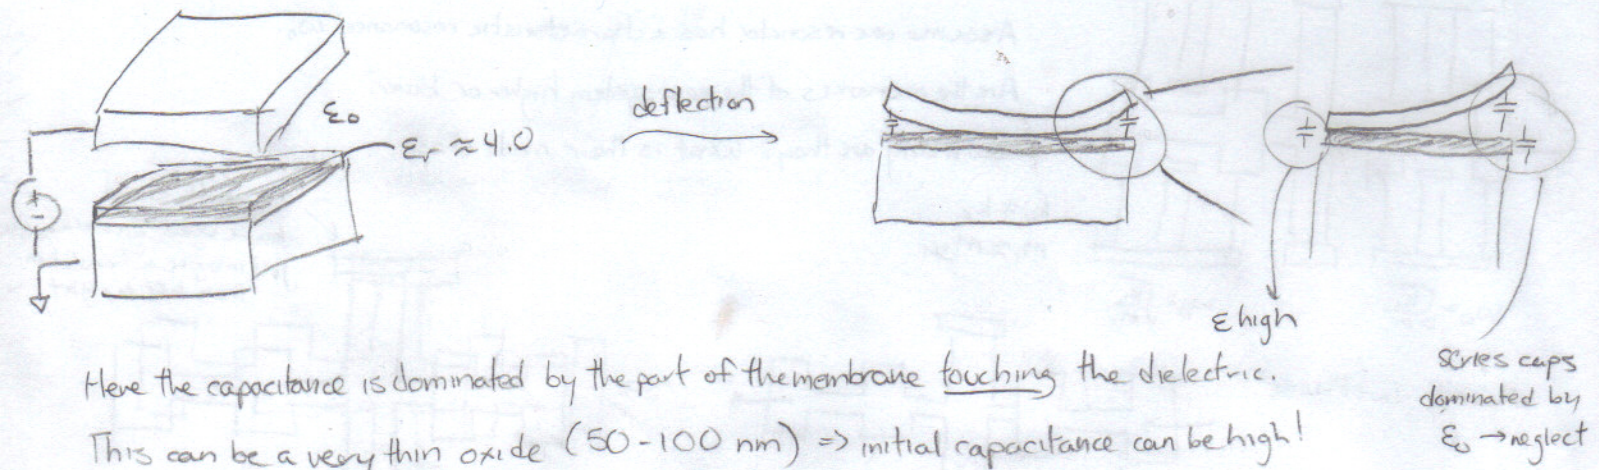 ε₀
εᵣ ≈ 4.0
deflection
ε high
series caps
dominated by
ε₀ → neglect
Here the capacitance is dominated by the part of the membrane touching the dielectric.
This can be a very thin oxide (50-100 nm) => initial capacitance can be high!